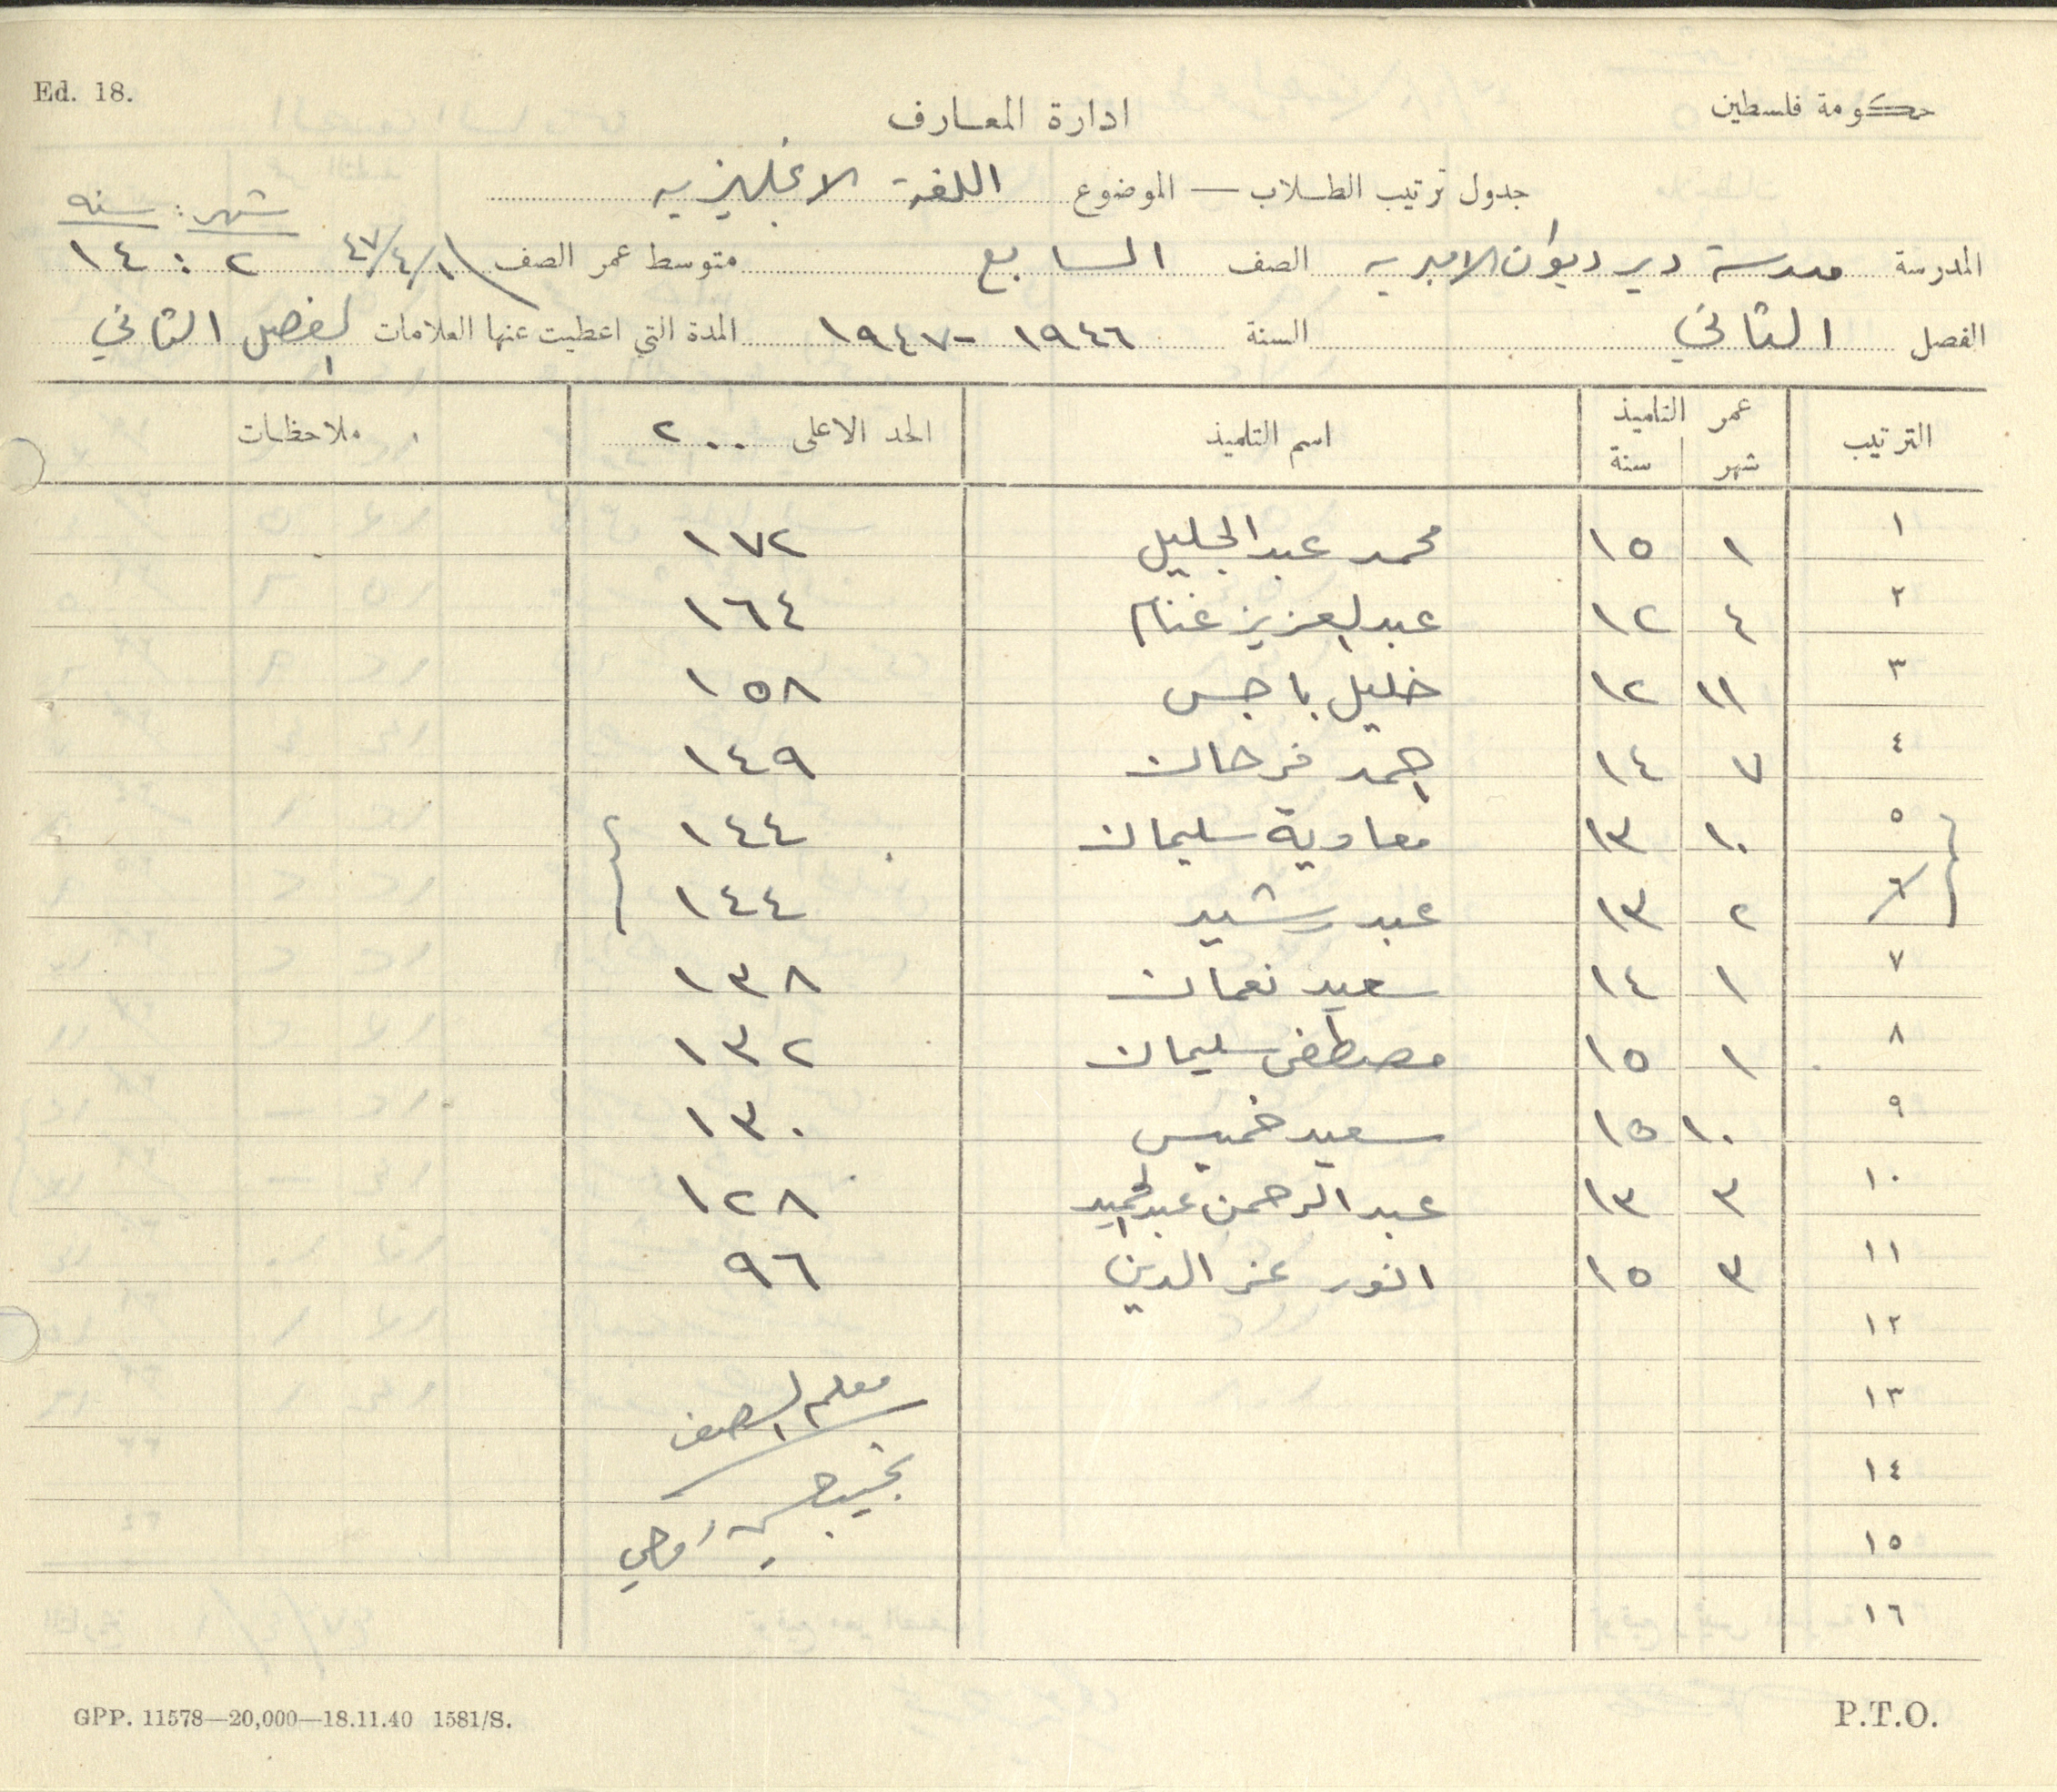 Ed. 18.
حكومة فلسطين
ادارة المعارف
جدول ترتيب الطلاب — الموضوع اللغة الانجليزيه
شهر : سنه
المدرسة مدرسة دير ديوان الاميريه الصف السابع متوسط عمر الصف ١/٤/٤٧ ٢ : ١٤
الفصل الثاني السنة ١٩٤٦ - ١٩٤٧ المدة التي اعطيت عنها العلامات الفصل الثاني
الترتيب عمر التلميذ اسم التلميذ الحد الاعلى ٢٠٠ ملاحظات
شهر سنة
١ ١ ١٥ محمد عبد الجليل ١٧٢
٢ ٤ ١٢ عبد العزيز غنام ١٦٤
٣ ١١ ١٢ خليل باجس ١٥٨
٤ ٧ ١٤ احمد فرحان ١٤٩
٥ ١٠ ١٣ معاوية سليمان ١٤٤
٦ ٢ ١٣ عبد رشيد ١٤٤
٧ ١ ١٤ سعيد نعمان ١٣٨
٨ ١ ١٥ مصطفى سليمان ١٣٢
٩ ١٠ ١٥ سعيد خميس ١٣٠
١٠ ٣ ١٣ عبد الرحمن عبد الحميد ١٢٨
١١ ٣ ١٥ انور عز الدين ٩٦
١٢
١٣ معلم الصف
١٤ نجيب
١٥
١٦
GPP. 11578—20,000—18.11.40 1581/S.
P.T.O.